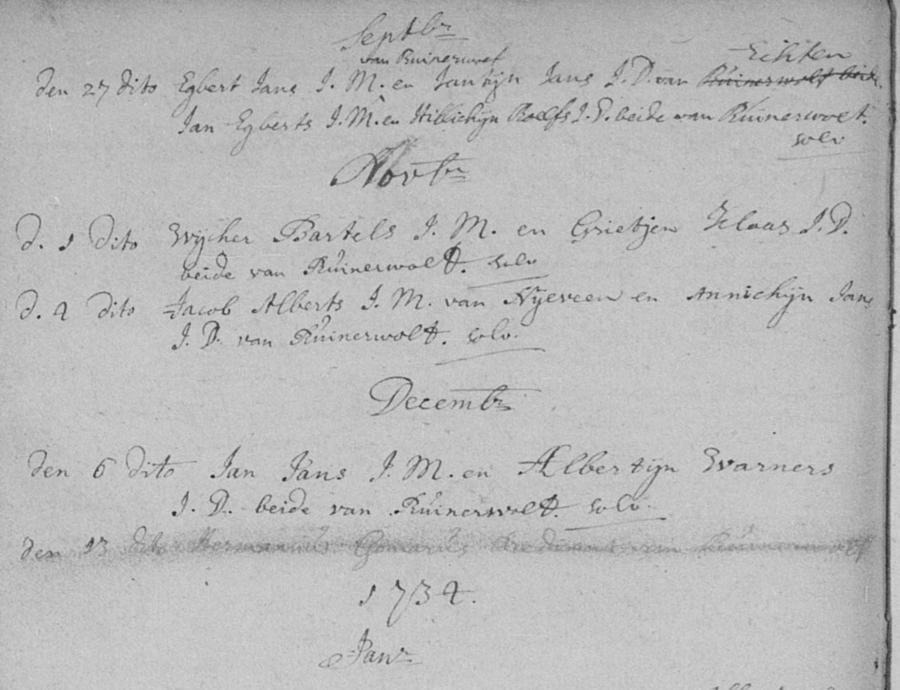 Septbr
van Ruinerwolt Echten
den 27 dito Egbert Jans J. M. en Jantyn Jans J. D. van Ruinerwolt beide
Jan Egberts J. M. en Hillichyn Roelfs J. D. beide van Ruinerwolt.
solv
Novbr
d. 1 dito Wycher Bartels J. M. en Grietjen Klaas J. D.
beide van Ruinerwolt. solv
d. 2 dito Jacob Alberts J. M. van Nyeveen en Annichyn Jans
J. D. van Ruinerwolt. solv.
Decembr
den 6 dito Jan Jans J. M. en Albertyn Warners
J. D. beide van Ruinerwolt. solv.
den 13 dito Hermannus
1734.
Janr